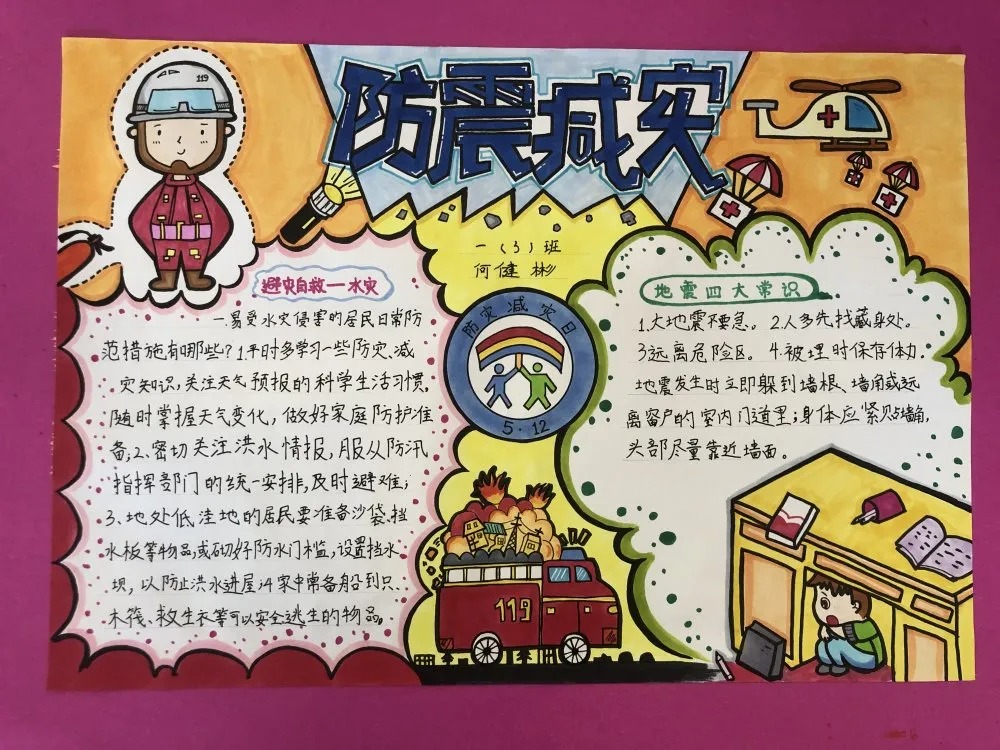 防震减灾
119
一(3)班
何健彬
避灾自救一水灾
一易受水灾侵害的居民日常防
范措施有哪些?1.平时多学习一些防灾、减
灾知识,关注天气预报的科学生活习惯,
随时掌握天气变化,做好家庭防护准
备;2、密切关注洪水情报,服从防汛
指挥部门的统一安排,及时避难;
3、地处低洼地的居民要准备沙袋、挡
水板等物品,或砌好防水门槛,设置挡水
坝,以防止洪水进屋;4家中常备船到只、
木筏、救生衣等可以安全逃生的物品。
防灾减灾日
5·12
119
地震四大常识
1.大地震不要急。2.人多先找藏身处。
3远离危险区。4.被埋时保存体力.
地震发生时立即躲到墙根、墙角或远
离窗户的室内门道里;身体应紧贴墙角,
头部尽量靠近墙面。